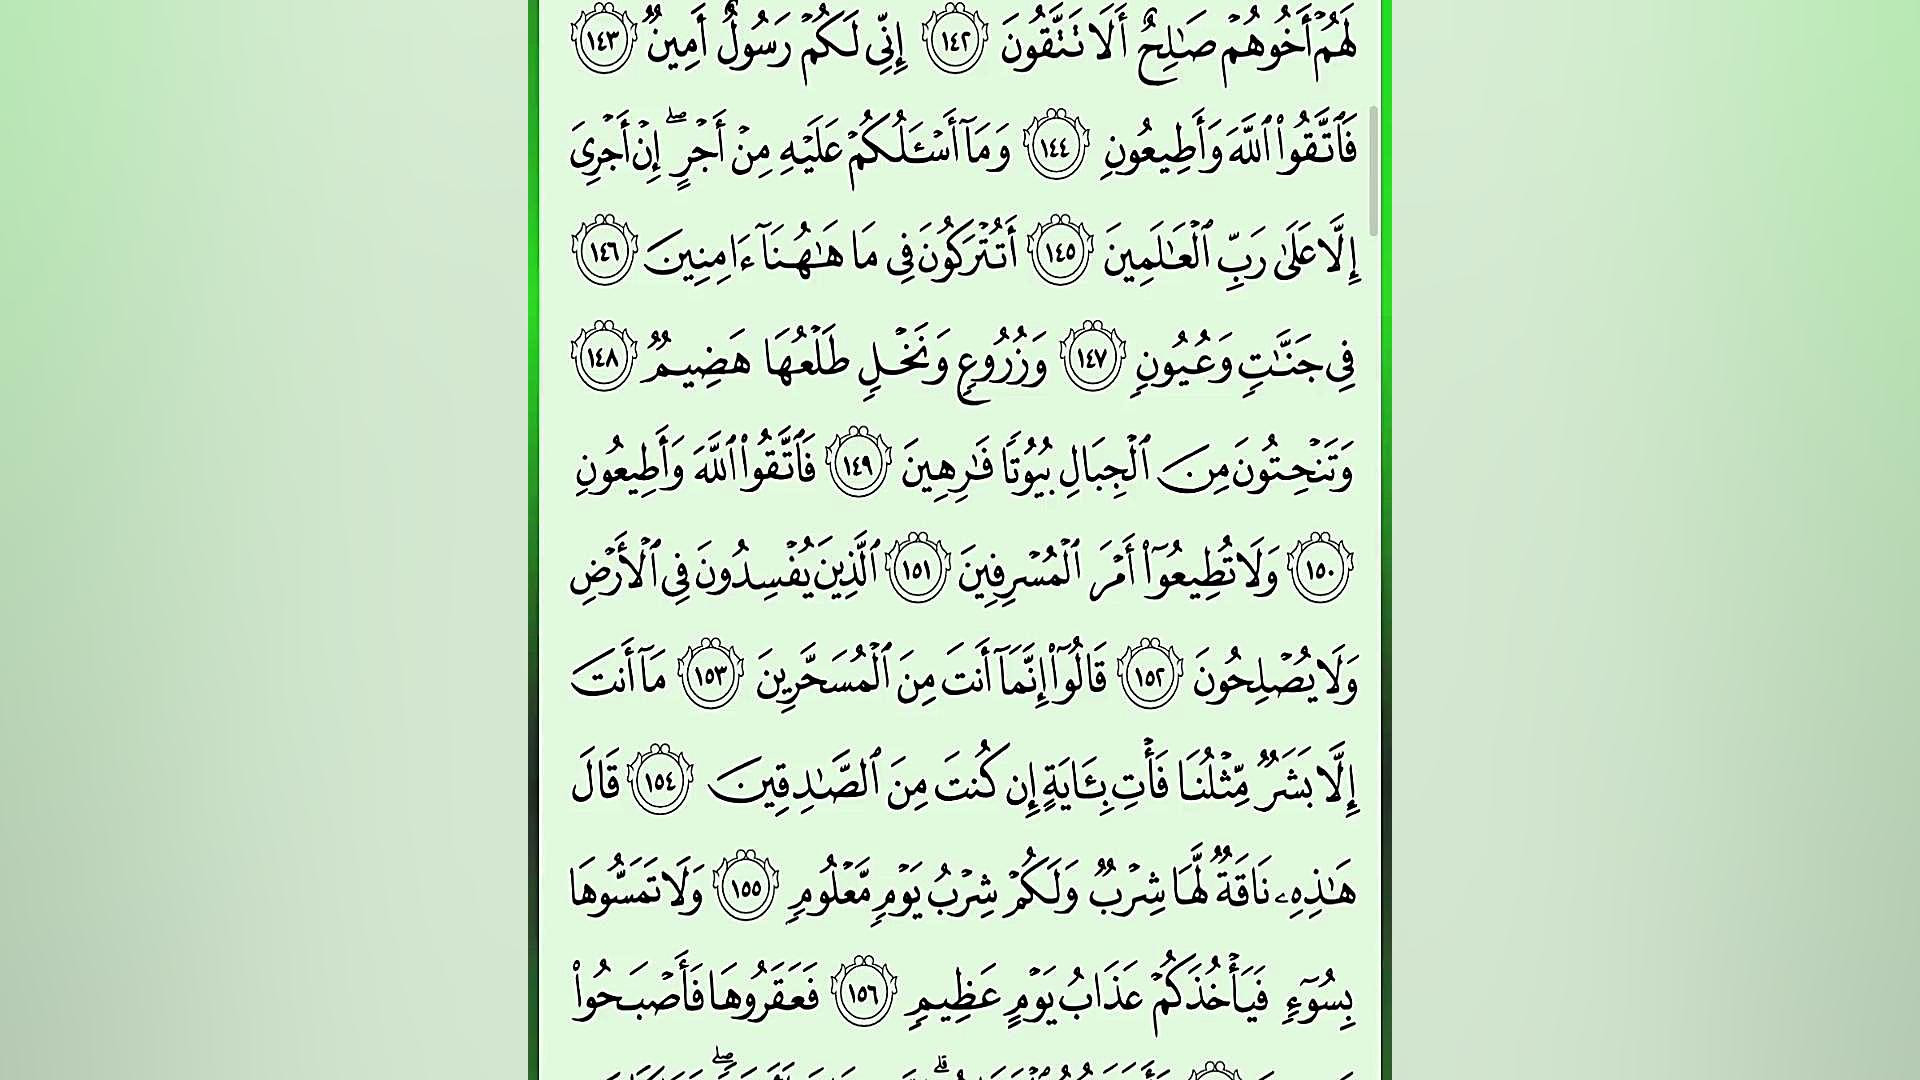 لَهُمْ أَخُوهُمْ صَـٰلِحٌ أَلَا تَتَّقُونَ ١٤٢ إِنِّى لَكُمْ رَسُولٌ أَمِينٌ ١٤٣
فَٱتَّقُوا۟ ٱللَّهَ وَأَطِيعُونِ ١٤٤ وَمَآ أَسْـَٔلُكُمْ عَلَيْهِ مِنْ أَجْرٍ ۖ إِنْ أَجْرِىَ
إِلَّا عَلَىٰ رَبِّ ٱلْعَـٰلَمِينَ ١٤٥ أَتُتْرَكُونَ فِى مَا هَـٰهُنَآ ءَامِنِينَ ١٤٦
فِى جَنَّـٰتٍ وَعُيُونٍ ١٤٧ وَزُرُوعٍ وَنَخْلٍ طَلْعُهَا هَضِيمٌ ١٤٨
وَتَنْحِتُونَ مِنَ ٱلْجِبَالِ بُيُوتًا فَـٰرِهِينَ ١٤٩ فَٱتَّقُوا۟ ٱللَّهَ وَأَطِيعُونِ
١٥٠ وَلَا تُطِيعُوٓا۟ أَمْرَ ٱلْمُسْرِفِينَ ١٥١ ٱلَّذِينَ يُفْسِدُونَ فِى ٱلْأَرْضِ
وَلَا يُصْلِحُونَ ١٥٢ قَالُوٓا۟ إِنَّمَآ أَنتَ مِنَ ٱلْمُسَحَّرِينَ ١٥٣ مَآ أَنتَ
إِلَّا بَشَرٌ مِّثْلُنَا فَأْتِ بِـَٔايَةٍ إِن كُنتَ مِنَ ٱلصَّـٰدِقِينَ ١٥٤ قَالَ
هَـٰذِهِۦ نَاقَةٌ لَّهَا شِرْبٌ وَلَكُمْ شِرْبُ يَوْمٍ مَّعْلُومٍ ١٥٥ وَلَا تَمَسُّوهَا
بِسُوٓءٍ فَيَأْخُذَكُمْ عَذَابُ يَوْمٍ عَظِيمٍ ١٥٦ فَعَقَرُوهَا فَأَصْبَحُوا۟